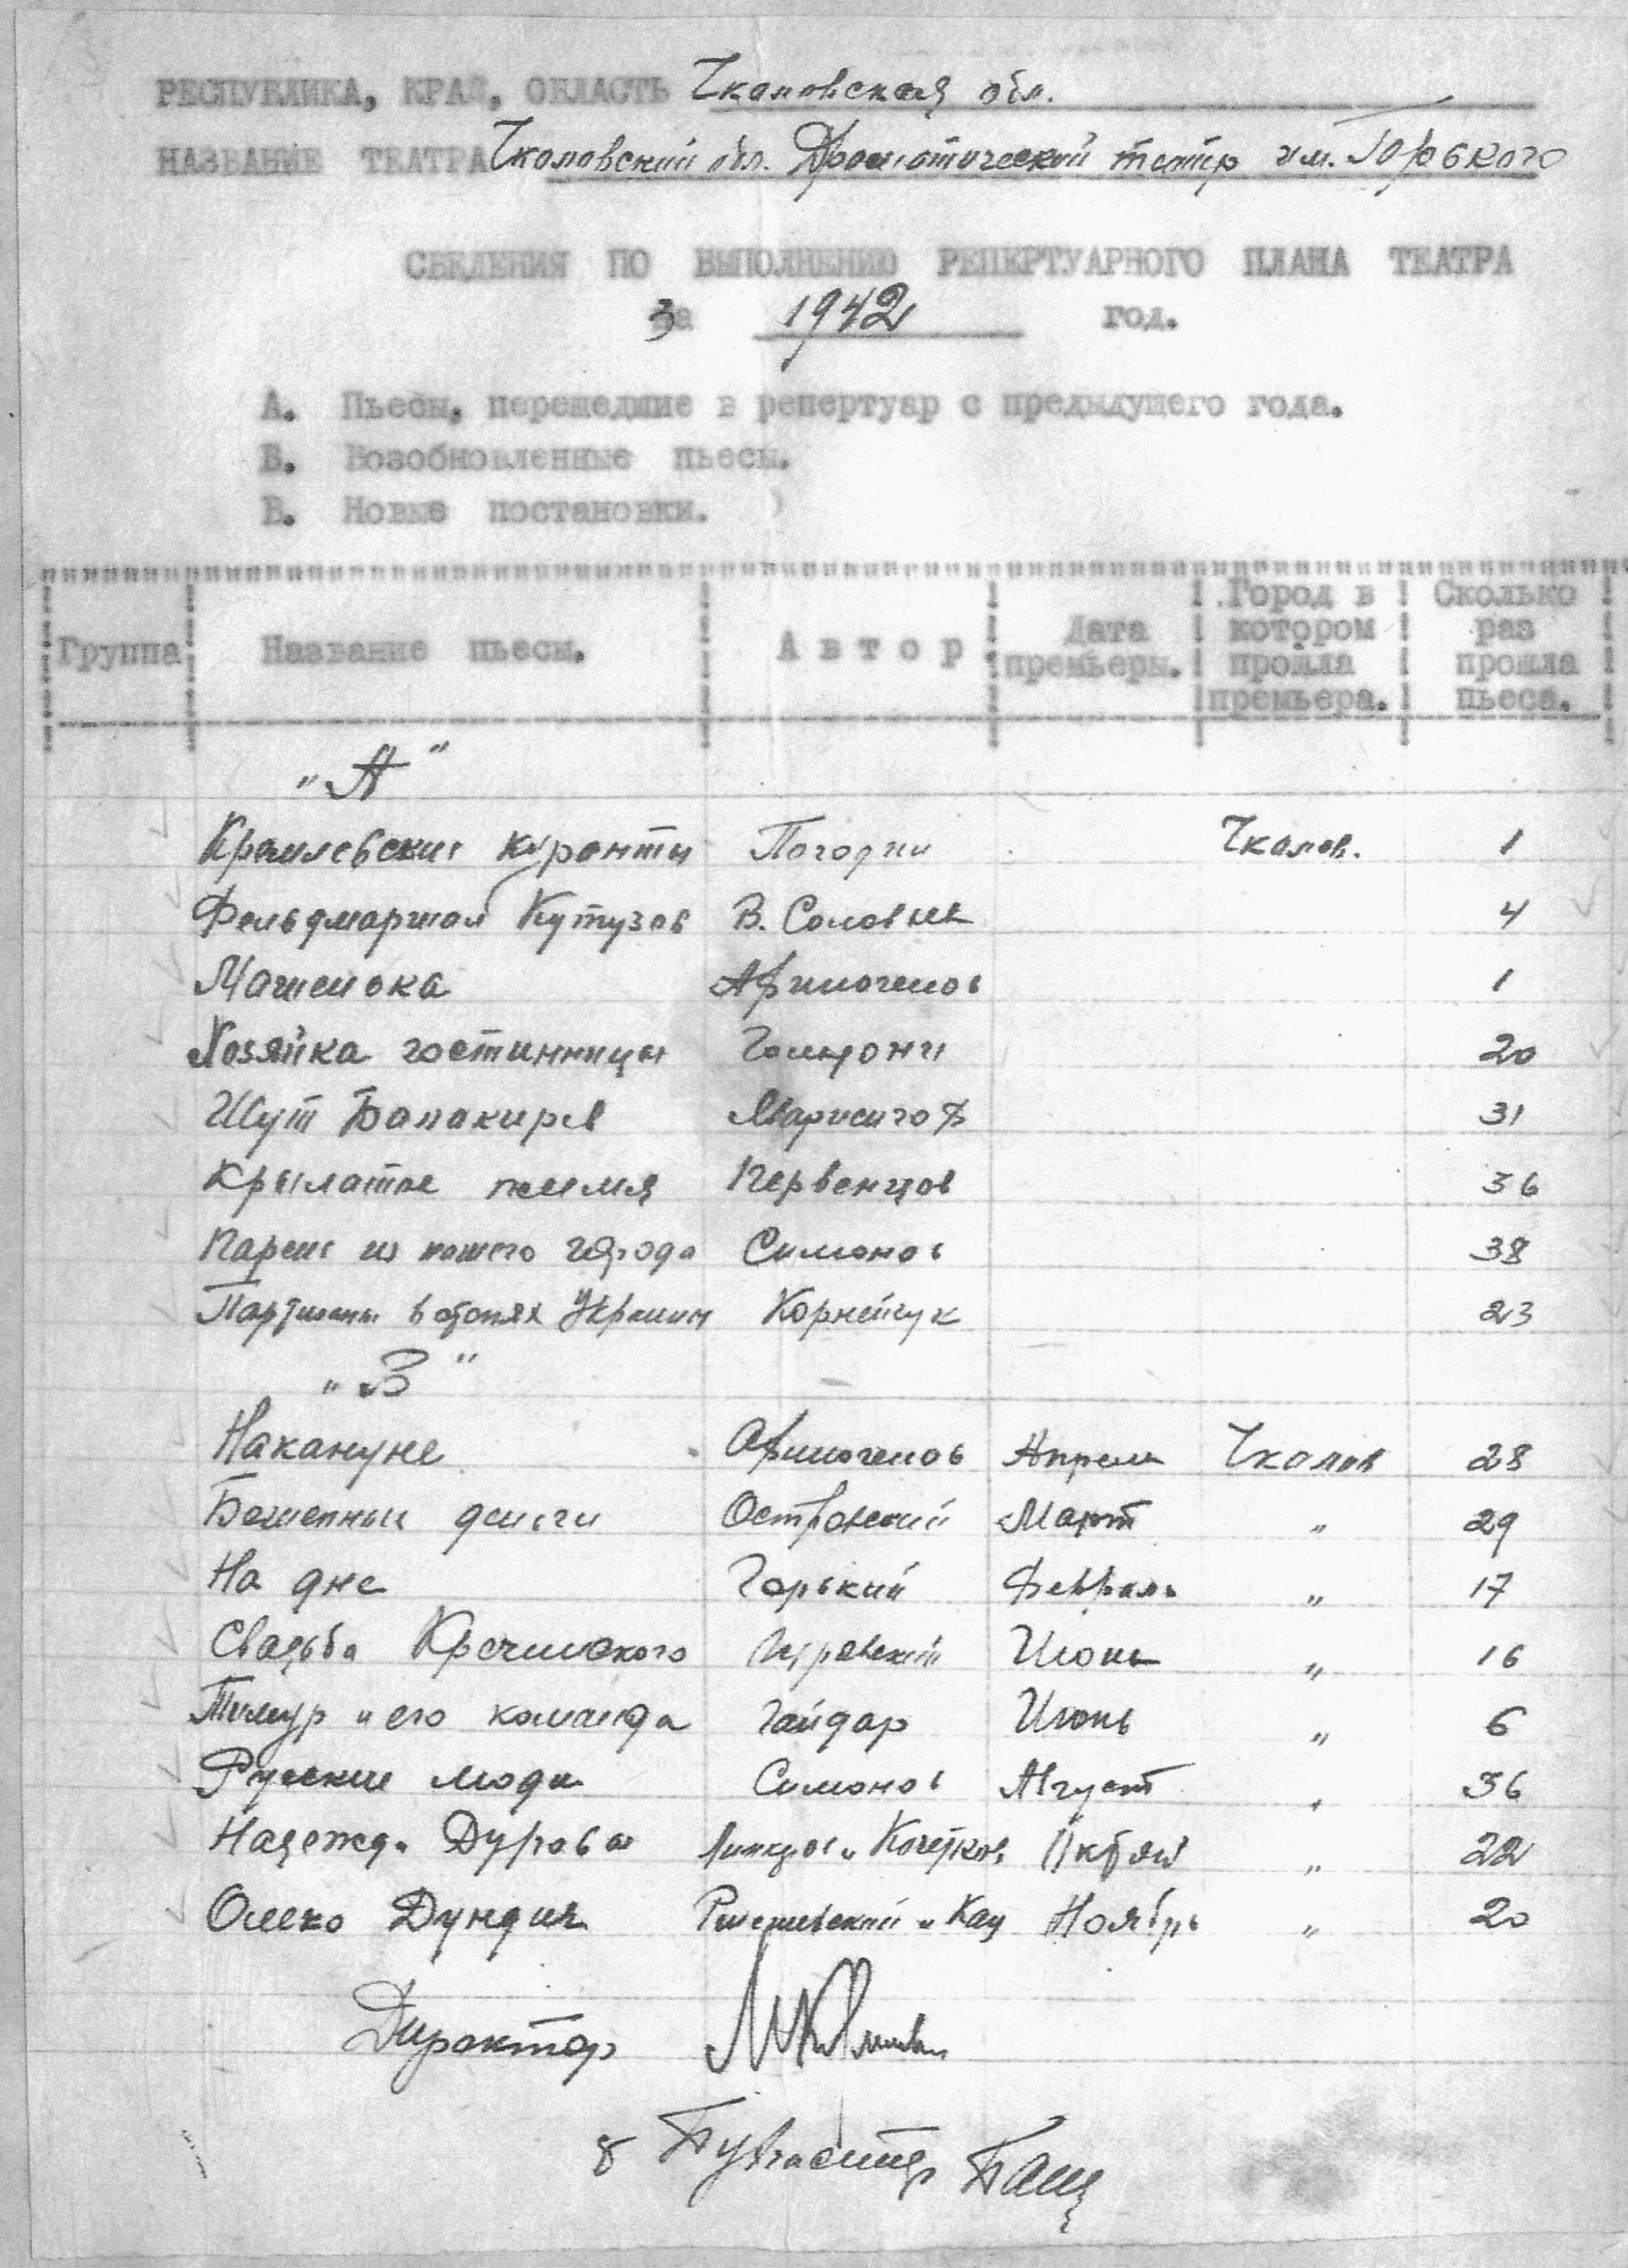 РЕСПУБЛИКА, КРАЙ, ОБЛАСТЬ Чкаловская обл.
НАЗВАНИЕ ТЕАТРА Чкаловский обл. Драматический театр им. Горького
СВЕДЕНИЯ ПО ВЫПОЛНЕНИЮ РЕПЕРТУАРНОГО ПЛАНА ТЕАТРА
За 1942 год.
А. Пьесы, перешедшие в репертуар с предыдущего года.
Б. Возобновленные пьесы.
В. Новые постановки.
Группа Название пьесы. Автор Дата премьеры. Город в котором прошла премьера. Сколько раз прошла пьеса.
"А"
Кремлевские куранты Погодин Чкалов. 1
Фельдмаршал Кутузов В. Соловьев 4
Машенька Афиногенов 1
Хозяйка гостинницы Гольдони 20
Шут Балакирев Мариенгоф 31
Крылатое племя Первенцов 36
Парень из нашего города Симонов 38
Партизаны в степях Украины Корнейчук 23
"В"
Накануне Афиногенов Апрель Чкалов 28
Бешенные деньги Островский Март " 29
На дне Горький Февраль " 17
Свадьба Кречинского Июнь " 16
Тимур и его команда Гайдар Июнь " 6
Русские люди Симонов Август " 36
Надежда Дурова Липскеров и Кочетков Октябрь " 22
Олеко Дундич Ржешевский и Кац Ноябрь " 20
Директор
Бухгалтер